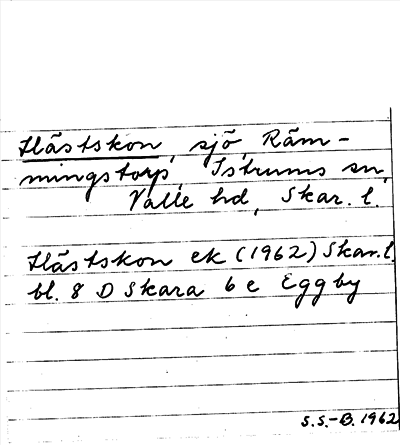 Hästskon, sjö, Räm-
mingstorp, Istrums sn,
Valle hd, Skar. l.
Hästskon ek (1962) Skar. l.
bl. 8 D Skara 6 e Eggby
S.S.-B. 1962